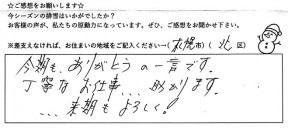 ☆ご感想をお願いします☆
今シーズンの排雪はいかがでしたか？
お客様の声が、私たちの原動力になっています。ぜひ、ご感想をお聞かせ下さい。
※差支えなければ、お住まいの地域をご記入ください→(札幌市)(北区)
今期も、ありがとうの一言です。
丁寧なお仕事…助かります。
…来期もよろしく!